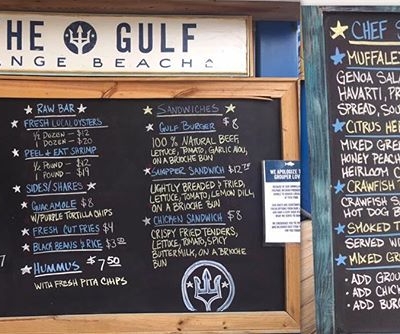 THE GULF
ANGE BEACH
RAW BAR
FRESH LOCAL OYSTERS
½ DOZEN - $12
1 DOZEN - $20
PEEL & EAT SHRIMP
½ POUND - $12
1 POUND - $19
SIDES/SHARES
GUACAMOLE $8
W/PURPLE TORTILLA CHIPS
FRESH CUT FRIES $4
BLACK BEANS & RICE $3.50
HUMMUS $7.50
WITH FRESH PITA CHIPS
SANDWICHES
GULF BURGER $8
100% NATURAL BEEF,
LETTUCE, TOMATO, GARLIC AIOLI,
ON A BRIOCHE BUN
SNAPPER SANDWICH $12.75
LIGHTLY BREADED & FRIED,
LETTUCE, TOMATO, LEMON DILL,
ON A BRIOCHE BUN
CHICKEN SANDWICH $8
CRISPY FRIED TENDERS,
LETTUCE, TOMATO, SPICY
BUTTERMILK, ON A BRIOCHE
BUN
WE APOLOGIZE
GROUPER LOV
CHEF S
MUFFALE
GENOA SALA
HAVARTI, PR
SPREAD, SOU
CITRUS HE
MIXED GREE
HONEY PEACH
HEIRLOOM C
CRAWFISH
CRAWFISH SA
HOT DOG B
SMOKED T
SERVED W
MIXED GRE
ADD GROU
ADD CHIC
ADD BURG